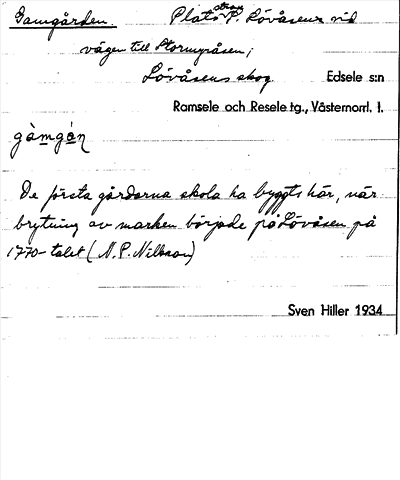 Gamgården. Plats strax P. Lövåsens vid
vägen till Stormyråsen;
Lövåsens skog Edsele s:n
Ramsele och Resele tg., Västernorrl. l.
gàmgá̱n
De första gårdarna skola ha byggts här, när
brytning av marken började på Lövåsen på
1770-talet (N. P. Nilsson)
Sven Hiller 1934